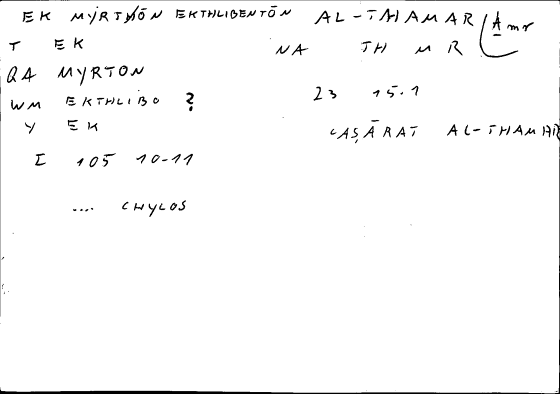 EK MYRTHŌN EKTHLIBENTŌN AL-THAMAR Amr
T EK NA TH M R
QA MYRTON
WM EKTHLIBO ? 23 15.1
Y EK ʿAṢĀRAT AL-THAMAR
I 105 10-11
.... CHYLOS